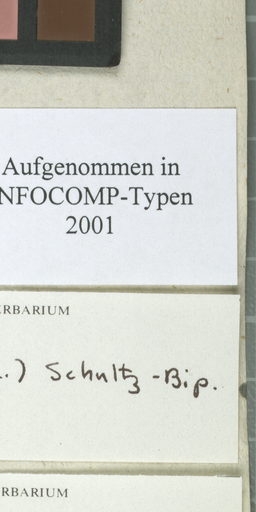 Aufgenommen in
NFOCOMP-Typen
2001
ERBARIUM
.) Schultz-Bip.
RBARIUM